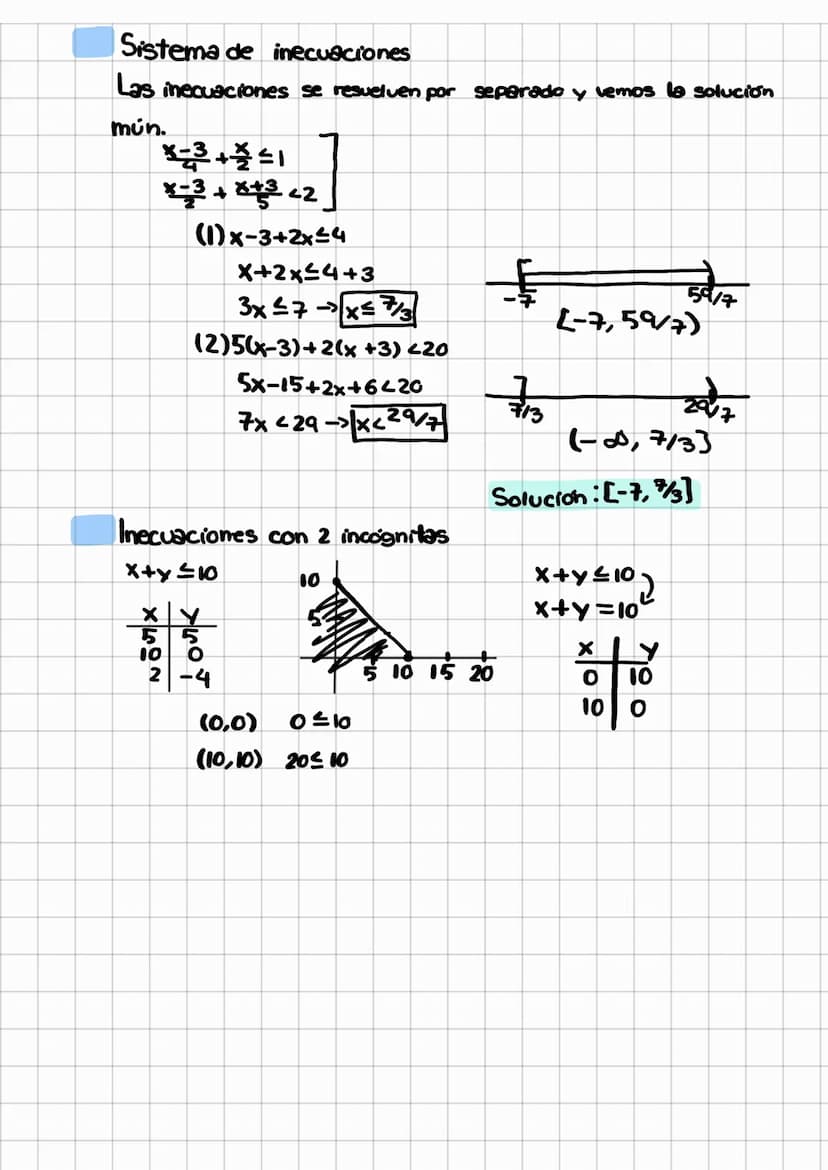 Sistema de inecuaciones
Las inecuaciones se resuelven por separado y vemos la solución
mún.
x-3/4 + x/2 ≤ 1
x-3/2 + x+3/5 < 2
(1) x-3+2x≤4
x+2x≤4+3
3x≤7 → x≤ 7/3
(2) 5(x-3)+2(x+3)<20
5x-15+2x+6<20
7x<29 → x<29/7
-7 59/7
[-7, 59/7)
7/3 29/7
(-∞, 7/3]
Solución: [-7, 7/3]
Inecuaciones con 2 incógnitas
x+y≤10
x y
5 5
10 0
2 -4
10
5
5 10 15 20
(0,0) 0≤10
(10,10) 20≤10
x+y≤10
x+y=10
x y
0 10
10 0